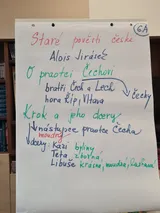 6A
Staré pověsti české
Alois Jirásek
O praotci Čechovi
bratři Čech a Lech
hora Říp, Vltava
Čechy
Krok a jeho dcery
nástupce praotce Čecha
moudrý
dcery: Kazi byliny
Teta
Libuše krásná, moudrá,